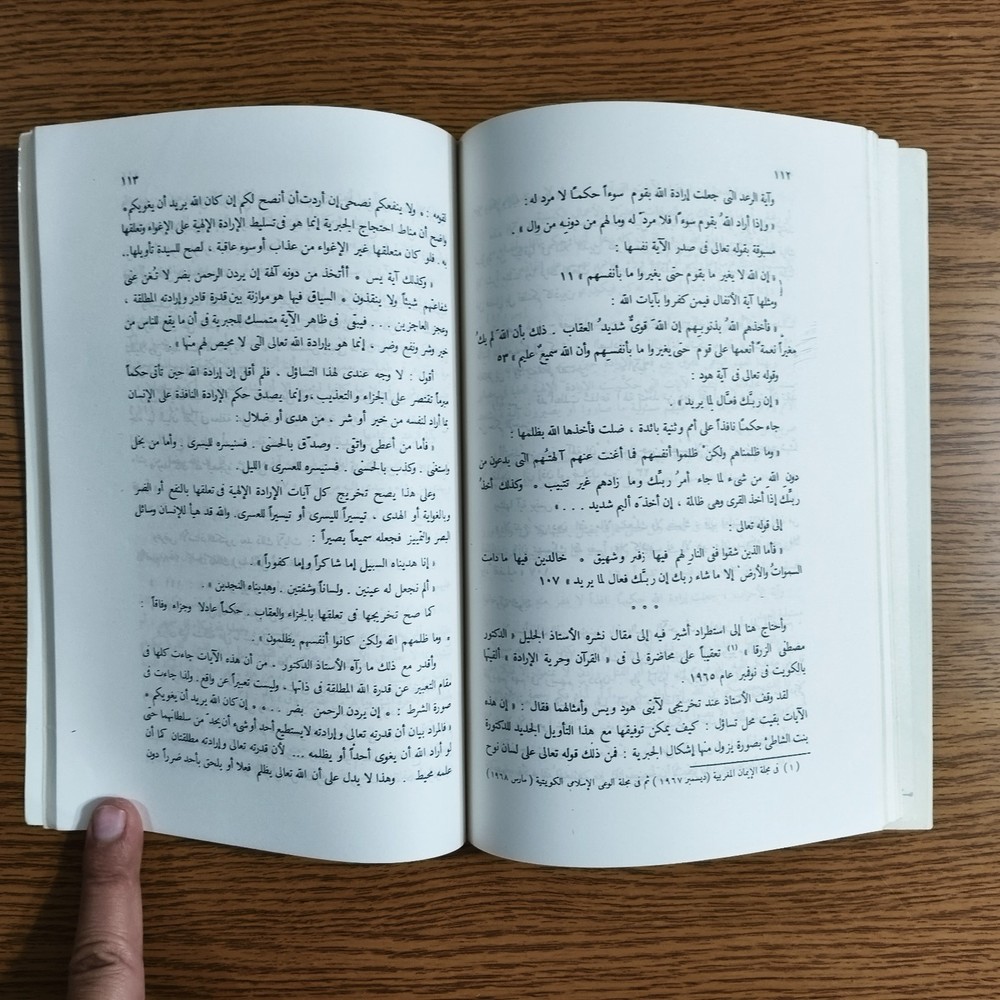 ١١٢
وآية الرعد التى جعلت إرادة الله بقوم سوءاً حكمًا لا مرد له :
« وإذا أراد اللهُ بقوم سوءًا فلا مردّ له وما لهم من دونه من وال » .
مسبوقة بقوله تعالى فى صدر الآية نفسها :
« إن الله لا يغير ما بقوم حتى يغيروا ما بأنفسهم » ١١
ومثلها آية الأنفال فيمن كفروا بآيات الله :
« فأخذهم اللهُ بذنوبهم إن اللهَ قوىٌّ شديدُ العقاب . ذلك بأن اللهَ لم يكُ
مغيراً نعمةً أنعمها على قوم حتى يغيروا ما بأنفسهم وأن الله سميعٌ عليم » ٥٣
وقوله تعالى فى آية هود :
« إن ربَّك فعَّال لما يريد » .
جاء حكمًا نافذاً على أمم وثنية بائدة ، ضلت فأخذها الله بظلمها :
« وما ظلمناهم ولكنْ ظلموا أنفسهم فما أغنت عنهم آلهتُهم التى يدعون من
دونِ اللهِ من شىء لما جاء أمرُ ربِّك وما زادهم غير تتبيب * وكذلك أخذُ
ربِّك إذا أخذ القرى وهى ظالمة ، إن أخذَه أليم شديد . . . »
إلى قوله تعالى :
« فأما الذين شقوا ففى النار لهم فيها زفير وشهيق * خالدين فيها ما دامت
السمواتُ والأرضُ إلا ما شاء ربك إن ربَّك فعال لما يريد » ١٠٧
* * *
وأحتاج هنا إلى استطراد أشير فيه إلى مقال نشره الأستاذ الجليل « الدكتور
مصطفى الزرقا » (١) تعقيباً على محاضرة لى فى « القرآن وحرية الإرادة » ألقيتها
بالكويت فى نوفمبر عام ١٩٦٥ .
لقد وقف الأستاذ عند تخريجى لآيتى هود ويس وأمثالهما فقال : « إن هذه
الآيات بقيت محل تساؤل : كيف يمكن توفيقها مع هذا التأويل الجديد للدكتورة
بنت الشاطئ بصورة يزول منها إشكال الجبرية : فمن ذلك قوله تعالى على لسان نوح
( ١ ) فى مجلة الإيمان المغربية ( ديسمبر ١٩٦٧ ) ثم فى مجلة الوعى الإسلامى الكويتية ( مارس ١٩٦٨ )
١١٣
لقومه : * ولا ينفعكم نصحى إن أردت أن أنصح لكم إن كان الله يريد أن يغويكم *
واضح أن مناط احتجاج الجبرية إنما هو فى تسليط الإرادة الإلهية على الإغواء وتعلقها
به . فلو كان متعلقها غير الإغواء من عذاب أو سوء عاقبة ، لصح للسيدة تأويلها . .
« وكذلك آية يس * أأتخذ من دونه آلهة إن يردن الرحمن بضر لا تُغن عنى
شفاعتهم شيئاً ولا ينقذون * السياق فيها هو موازنة بين قدرة قادر وإرادته المطلقة ،
وعجز العاجزين . . . فيبقى فى ظاهر الآية متمسك للجبرية فى أن ما يقع للناس من
خير وشر ونفع وضر ، إنما هو بإرادة الله تعالى التى لا محيص لهم منها »
أقول : لا وجه عندى لهذا التساؤل ، فلم أقل إن إرادة الله حين تأتى حكماً
مبرماً تقتصر على الجزاء والتعذيب ، وإنما يصدق حكم الإرادة النافذة على الإنسان
بما أراد لنفسه من خير أو شر ، من هدى أو ضلال :
« فأما من أعطى واتقى . وصدّق بالحسنى . فسنيسره لليسرى . وأما من بخل
واستغنى . وكذب بالحسنى . فسنيسره للعسرى » الليل .
وعلى هذا يصح تخريج كل آيات الإرادة الإلهية فى تعلقها بالنفع أو الضر
وبالغواية أو الهدى ، تيسيراً لليسرى أو تيسيراً للعسرى. والله قد هيأ للإنسان وسائل
البصر والتمييز فجعله سميعاً بصيراً :
« إنا هديناه السبيل إما شاكراً وإما كفوراً »
« ألم نجعل له عينين . ولساناً وشفتين . وهديناه النجدين » .
كما صح تخريجها فى تعلقها بالجزاء والعقاب . حكماً عادلا وجزاء وفاقاً :
« وما ظلمهم الله ولكن كانوا أنفسهم يظلمون » .
وأقدر مع ذلك ما رآه الأستاذ الدكتور ، من أن هذه الآيات جاءت كلها فى
مقام التعبير عن قدرة الله المطلقة فى ذاتها . وليست تعبيراً عن واقع. ولذا جاءت فى
صورة الشرط : * إن يردن الرحمن بضر . . * * إن كان الله يريد أن يغويكم *
« فالمراد بيان أن قدرته تعالى وإرادته لا يستطيع أحد أو شىء أن يحدّ من سلطانهما حتى
لو أراد الله أن يغوى أحداً أو يظلمه . . . لأن قدرته تعالى وإرادته مطلقتان كما أن
علمه محيط . وهذا لا يدل على أن الله تعالى يظلم فعلا أو يلحق بأحد ضرراً دون